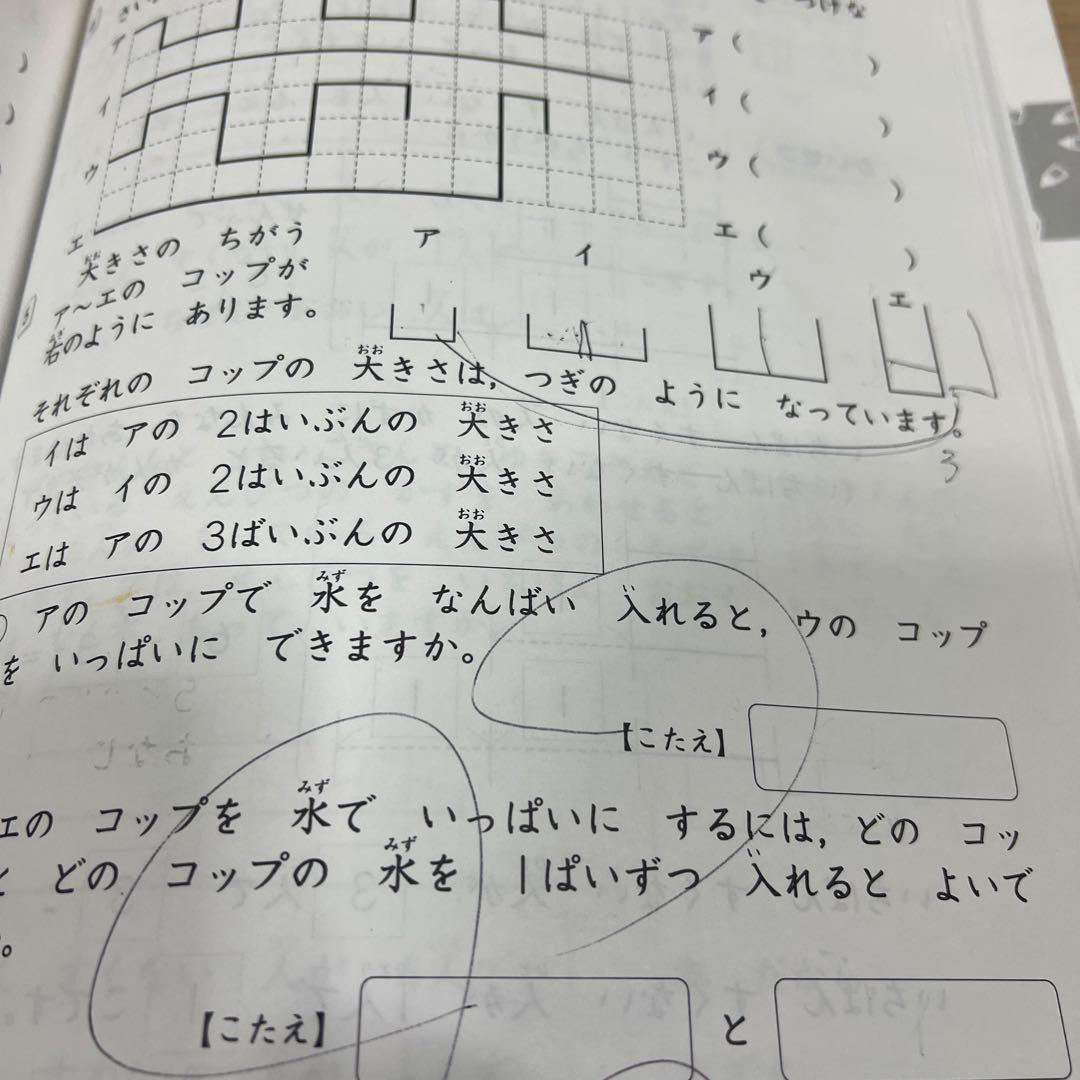 ア
イ
ウ
エ
ア(　　)
イ(　　)
ウ(　　)
エ(　　)
大きさの ちがう
ア〜エの コップが
右のように あります。
ア
イ
ウ
エ
それぞれの コップの 大きさは, つぎの ように なっています。
3
イは アの 2はいぶんの 大きさ
ウは イの 2はいぶんの 大きさ
エは アの 3ばいぶんの 大きさ
アの コップで 水を なんばい 入れると, ウの コップ
を いっぱいに できますか。
【こたえ】
エの コップを 水で いっぱいに するには, どの コッ
と どの コップの 水を 1ぱいずつ 入れると よいで
。
【こたえ】 と